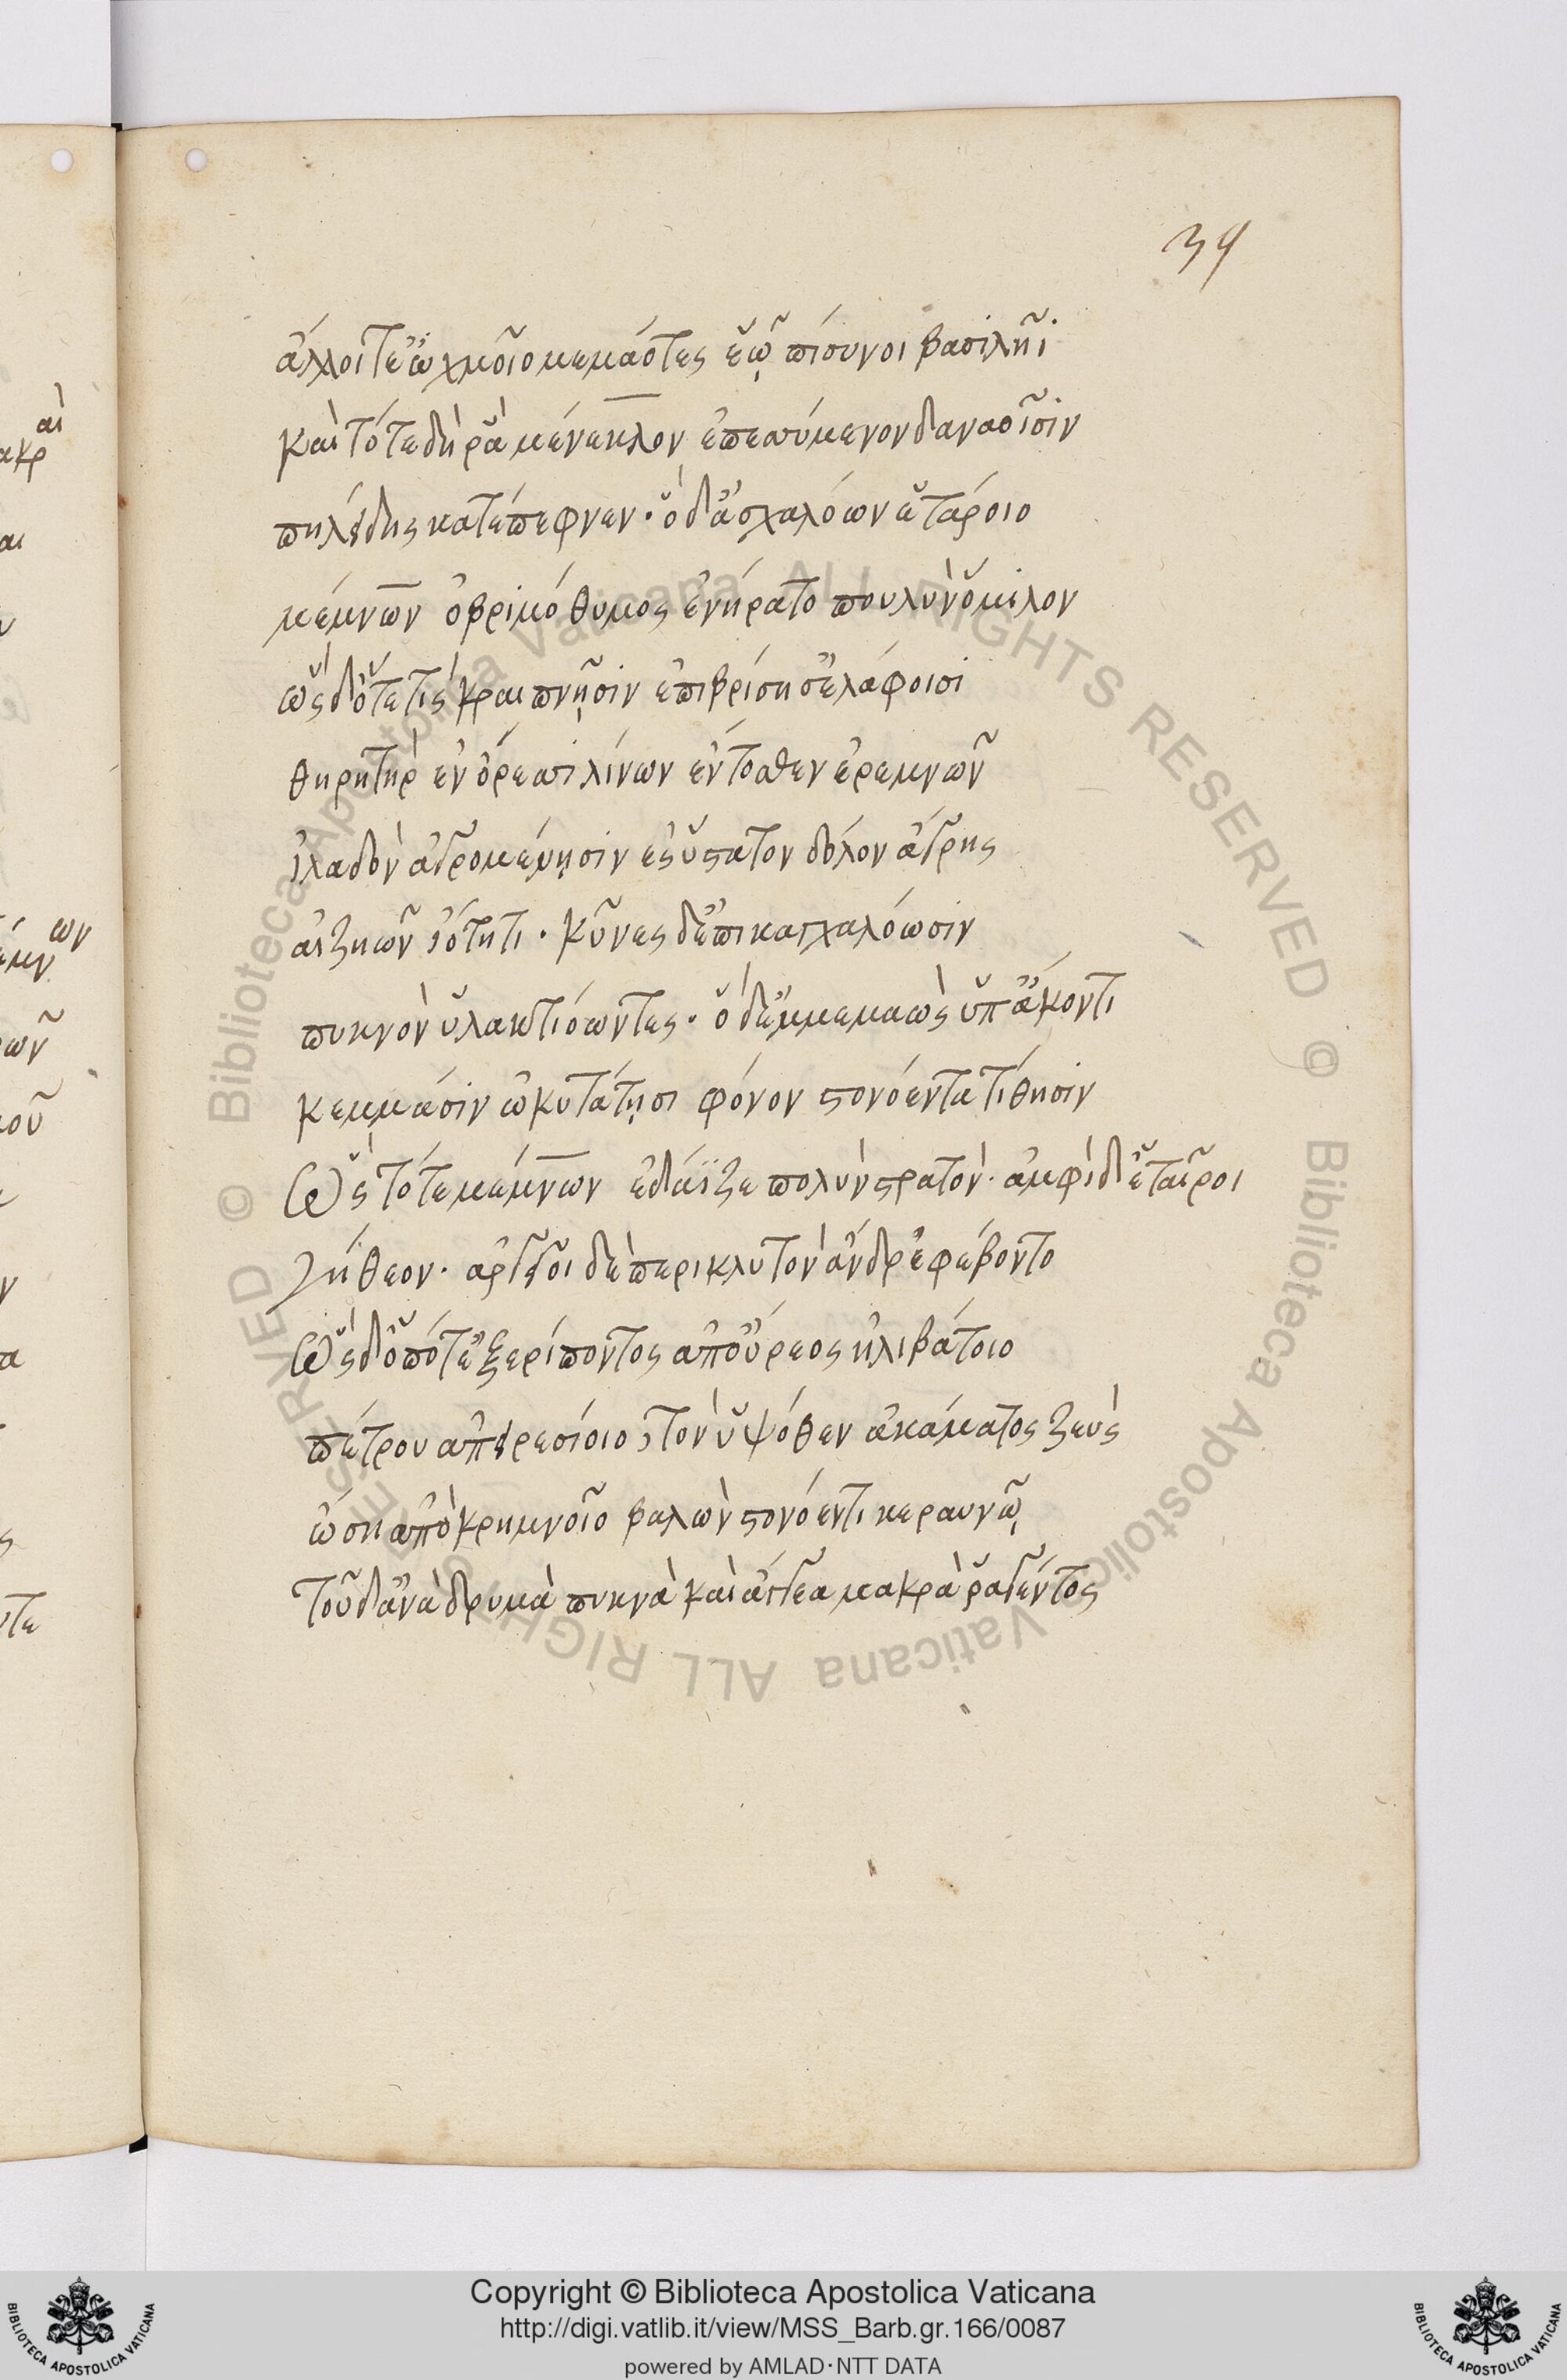 39
ἄλλοί τε ἰωχμοῖο μεμαότες ἑῷ πίσυνοι βασιλῆϊ
καὶ τότε δή ῥα μένεκλον ἐπεσύμενον δαναοῖσιν
πηλείδης κατέπεφνεν· ὁ δ' ἀσχαλόων ἑτάροιο
μέμνων ὀβριμόθυμος ἐνήρατο πουλὺν ὅμιλον
ὡς δ' ὅτε τὶς κραιπνῇσιν ἐπιβρίση σ' ἐλάφοισι
θηρητὴρ ἐν ὄρεσι λίνων ἔντοσθεν ἐρεμνῶν
ἰλαδὸν ἀγρομένῃσιν ἐς ὕστατον δόλον ἄγρης
αἰζηῶν ἰότητι· κῦνες δ' ἐπικαγχαλόωσιν
πυκνὸν ὑλακτιόωντες· ὁ δ' ἐμμεμαὼς ὑπ' ἄκοντι
κεμμάσιν ὠκυτάτῃσι φόνον στονόεντα τίθησιν
ὣς τότε μέμνων ἐδάϊζε πολὺν στρατόν· ἀμφὶ δ' ἑταῖροι
γήθεον· ἀργεῖοι δὲ περικλυτὸν ἄνδρ' ἐφέβοντο
ὡς δ' ὁπότ' ἐξερίποντος ἀπ' οὔρεος ἠλιβάτοιο
πέτρου ἀπειρεσίοιο, τὸν ὑψόθεν ἀκάματος ζεὺς
ὤση ἀπὸ κρημνοῖο βαλὼν στονόεντι κεραυνῷ
τοῦ δ' ἀνὰ δρυμὰ πυκνὰ καὶ ἄγγεα μακρὰ ῥαγέντος
Copyright © Biblioteca Apostolica Vaticana
http://digi.vatlib.it/view/MSS_Barb.gr.166/0087
powered by AMLAD·NTT DATA